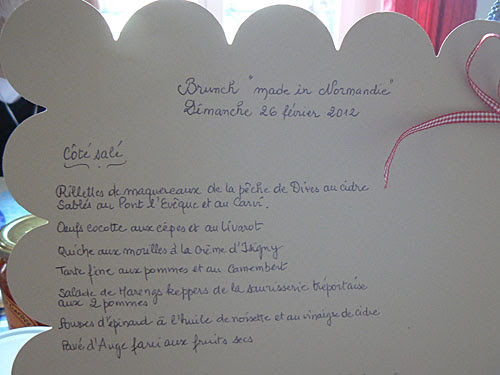 Brunch "made in Normandie"
Dimanche 26 février 2012
Côté salé
Rillettes de maquereaux de la pêche de Dives au cidre
Sablés au Pont l'Evêque et au Carvi.
Oeufs cocotte aux cèpes et au livarot
Quiche aux morilles à la Crème d'Isigny
Tarte fine aux pommes et au Camembert
Salade de Harengs keppers de la saurisserie tréportaise
aux 2 pommes
Pousses d'épinard à l'huile de noisette et au vinaigre de cidre
Pavé d'Auge farci aux fruits secs